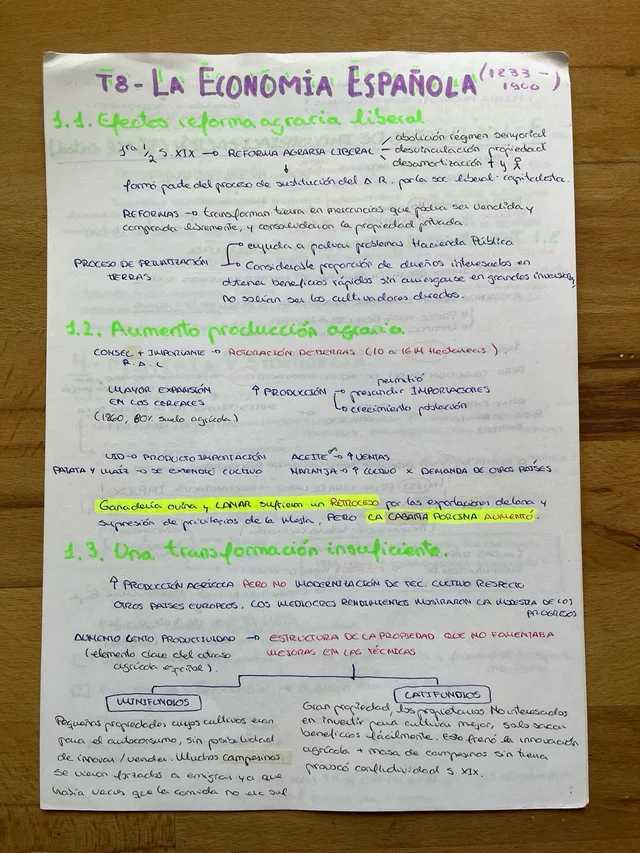 T8 - LA ECONOMÍA ESPAÑOLA (1833-1900
1.1. Efectos reforma agraria liberal
1ra 1/2 S. XIX → REFORMA AGRARIA LIBERAL
abolición régimen senyorial
desvinculación propiedad
desamortización
formó parte del proceso de sustitución del A.R. por la soc liberal-capitalista.
REFORMAS → transforman tierra en mercancías que podría ser vendida y
comprada libremente, y consolidaron la propiedad privada.
PROCESO DE PRIVATIZACIÓN TIERRAS
ayuda a paliar problemas Hacienda Pública
Considerable proporción de dueños interesados en
obtener beneficios rápidos sin arriesgarse en grandes inversiones,
no solían ser los cultivadores directos.
1.2. Aumento producción agraria
CONSEC + IMPORTANTE → ROTURACIÓN DE TIERRAS (10 a 16 M Hectáreas)
R. A. L
MAYOR EXPANSIÓN
EN LOS CEREALES
(1860, 80% suelo agrícola)
↑ PRODUCCIÓN
permitió
prescindir IMPORTACIONES
crecimiento población
VID → PRODUCTO IMPORTACIÓN
ACEITE → ↑ VENTAS
PATATA Y MAÍZ → SE EXTENDIÓ CULTIVO
NARANJA → ↑ CULTIVO X DEMANDA DE OTROS PAÍSES
Ganadería ovina y LANAR sufrieron un RETROCESO por las exportaciones de lana y
supresión de privilegios de la Mesta, PERO LA CABAÑA PORCINA AUMENTÓ.
1.3. Una transformación insuficiente.
↑ PRODUCCIÓN AGRÍCOLA PERO NO MODERNIZACIÓN DE TEC. CULTIVO RESPECTO
OTROS PAÍSES EUROPEOS. LOS MEDIOCRES RENDIMIENTOS MOSTRARON LA MODESTIA DE LOS
PROGRESOS
AUMENTO LENTO PRODUCTIVIDAD → ESTRUCTURA DE LA PROPIEDAD QUE NO FOMENTABA
MEJORAS EN LAS TÉCNICAS
(elemento clave del atraso
agrícola español)
MINIFUNDIOS
Pequeñas propiedades cuyos cultivos eran
para el autoconsumo, sin posibilidad
de innovar/vender. Muchos campesinos
se vieron forzados a emigrar ya que
había veces que la comida no era suf
LATIFUNDIOS
Gran propiedad, los propietarios No interesados
en invertir para cultivar mejor, solo sacar
beneficios fácilmente. Esto frenó la innovación
agrícola + masa de campesinos sin tierra
provocó conflictividad S. XIX.